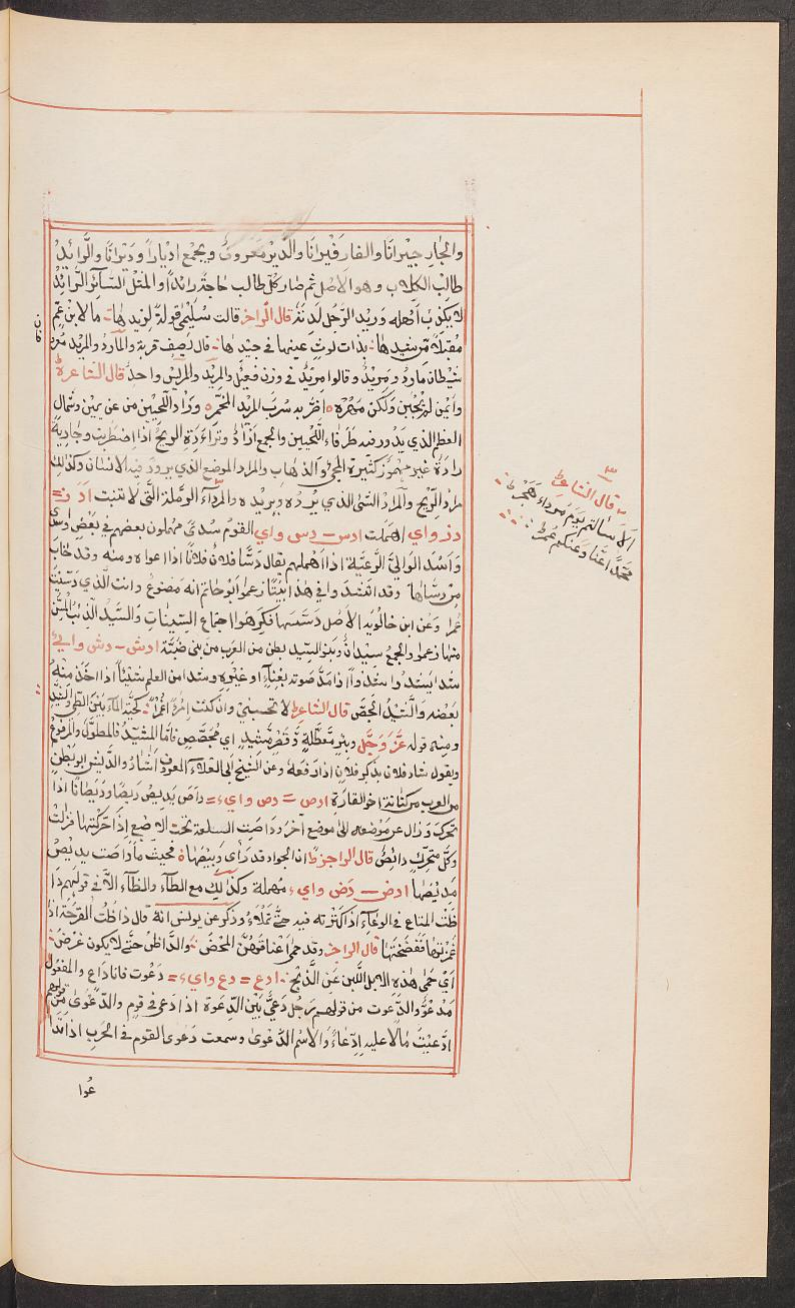 والجار جيرانا والفار فيرانا والدير معروف ويجمع اديارا وديرانا والرائد
طالب الكلاب وهو الاصل ثم صار كل طالب حاجة رائدا والمثل السائر الرائد
لا يكذب اهله وريد الرجل لدته قال الراجز قالت سليمى قولة لريدها ما لابن عمى
مقبلا من شيدها بذات لوث عينها فى جيدها قال رصف قربة والمارد والمريد معرو
شيطان مارد ومريد وقالوا مريد فى وزن فعيل والمريد والمريس واحد قال الشاعر
المريد المخمر وراد اللحيين من عن يمين وشمال
العظم الذي يدور فيه طرفا اللحيين والجمع ارآد وتراءدت الريح اذا اضطربت وجارية
رادة غير مهموز كثيرة المجى والذهاب والمراد الموضع الذي يرود فيه الانسان وكذلك
مراد الريح والمراد الشئ الذي يريده ويريده والمرداء الرملة التى لا تنبت ا د ز =
د ز واي اهملت ادس – دس واي القوم سدى مهملون بعضهم فى بعض وسدى
واسد الوالي الرعية اذا اهملهم يقال دسا فلان فلانا اذا اغواه ومنه وقد خاب
من دساها وقد انشد وا فى هذا بيتا زعموا ابو حاتم انه مصنوع وانت الذي دسيت
عمرا وعن ابن خالويه الاصل دسسها فكرهوا اجتماع السينات والسيد الذئب المسن
منها زعموا والجمع سيدان وبنو السيد بطن من العرب من بنى ضبة ادش – دش واي
شدا يشدوا شدوا اذا مد صوته بغناء او غيره وشدا من العلم شيئا اذا اخذ منه
بعضه والشيد الجص قال الشاعر لا تحسبني وان كنت امرءا غمرا كحية الماء بين الطي والشيد
ومنه قوله عز وجل وبئر معطلة وقصر مشيد اي مجصص فاما المشيد فالمطول والمرفوع
ويقول شاد فلان بذكر فلان اذا رفعه وعن الشيخ ابى العلاء المعروف اشاد والديش ابو بطن
من العرب من كنانة اخو القارة ادص = دص واي = داص يديص ديصا وديصانا اذا
تحرك وزال عن موضعه الى موضع آخر وداصت السلعة تحت الاصبع اذا حركتها فزالت
وكل متحرك دائص قال الراجز ان الجواد قد راى وبيصها فحيث ما داصت يديص
مديصها ادض – دض واي مهملة وكذلك مع الطاء والظاء الا فى قولهم دا
ظت المتاع فى الوعاء اذا اكثرته فيه حتى تملاء وذكر عن يونس انه قال دا ظت القرحة اذا
غمزتها ففضختها قال الراجز وقد حمى اعناقهن المحض والداظ حتى لا يكون غرض
اي حمى هذه الابل اللبن عن الذبح ادع = دع واي = دعوت فانا داع والمفعول
مدعو والدعوت من قولهم رجل دعي بين الدعوة اذا ادعى فى قوم والدعوى من قولهم
ادعيت مالا عليه ادعاء والاسم الدعوى وسمعت دعوى القوم فى الحرب اذا تدا
عوا
قال الشاعر
محمدا عنا وعنكم عمر